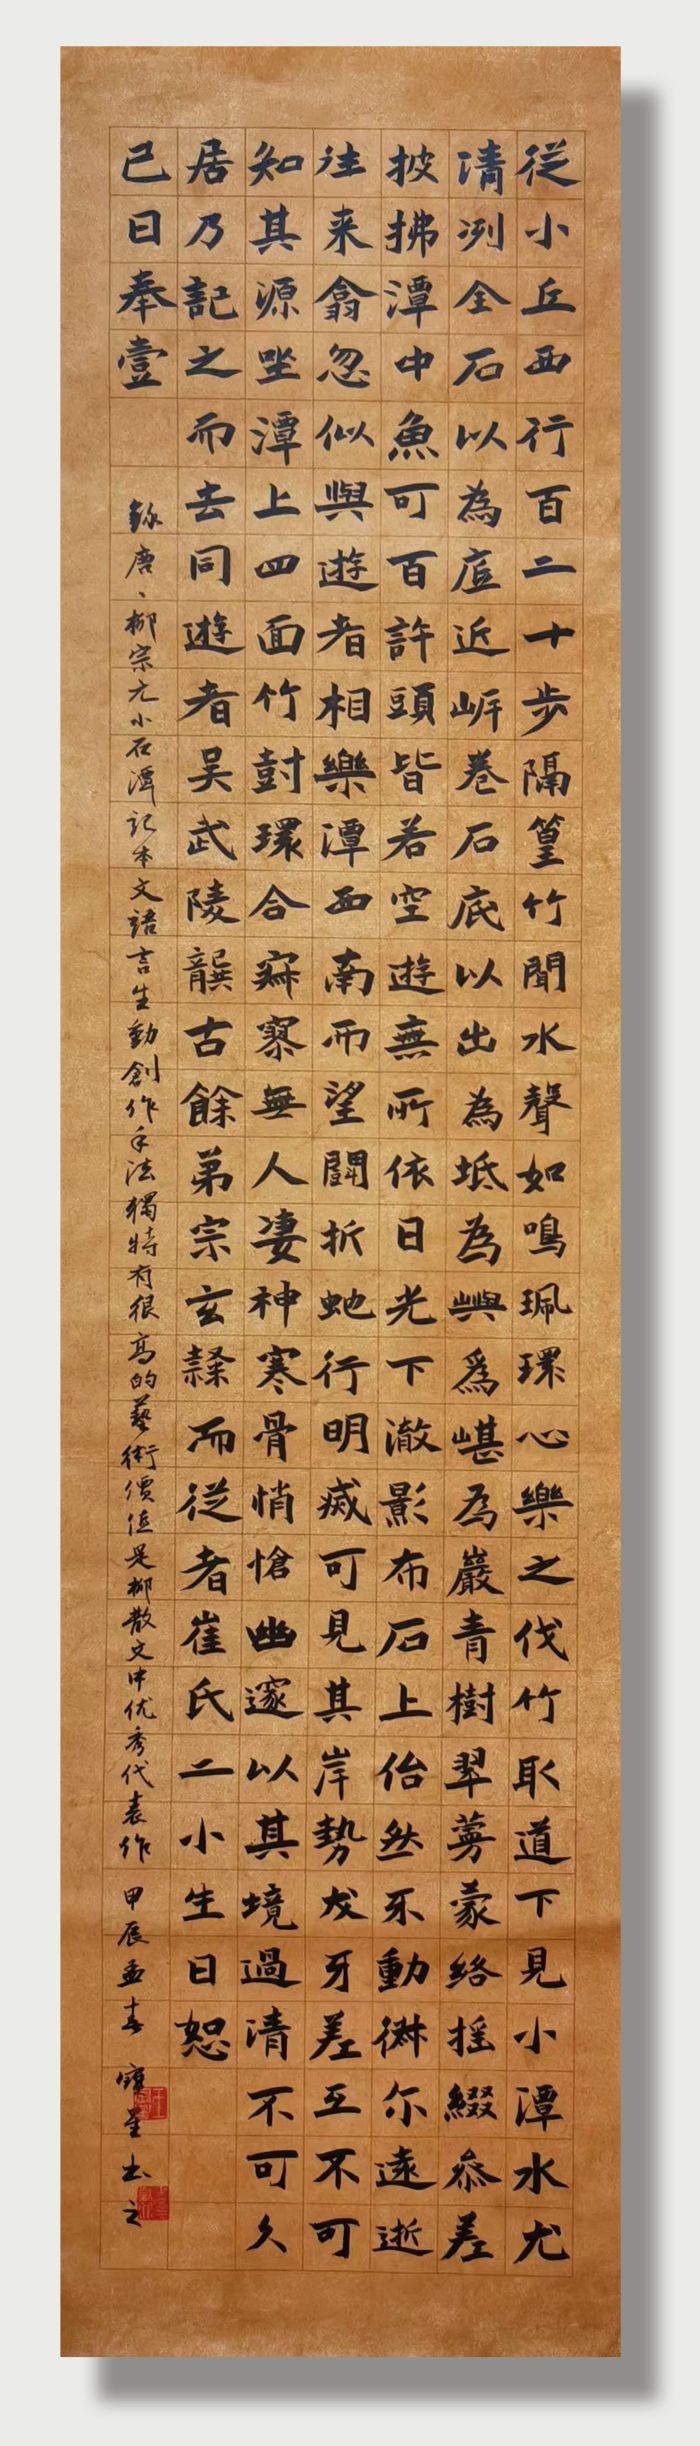 從小丘西行百二十步隔篁竹聞水聲如鳴珮環心樂之伐竹取道下見小潭水尤
清冽全石以為底近岸卷石底以出為坻為嶼為嵁為巖青樹翠蔓蒙絡搖綴參差
披拂潭中魚可百許頭皆若空遊無所依日光下澈影布石上佁然不動俶尔遠逝
往来翕忽似與遊者相樂潭西南而望鬭折虵行明滅可見其岸勢犬牙差互不可
知其源坐潭上四面竹尌環合寂寥無人凄神寒骨悄愴幽邃以其境過清不可久
居乃記之而去同遊者吳武陵龔古餘弟宗玄隸而從者崔氏二小生曰恕
已曰奉壹
錄唐、柳宗元小石潭記本文語言生動創作手法獨特有很高的藝術價值是柳散文中优秀代表作 甲辰孟春 星书之